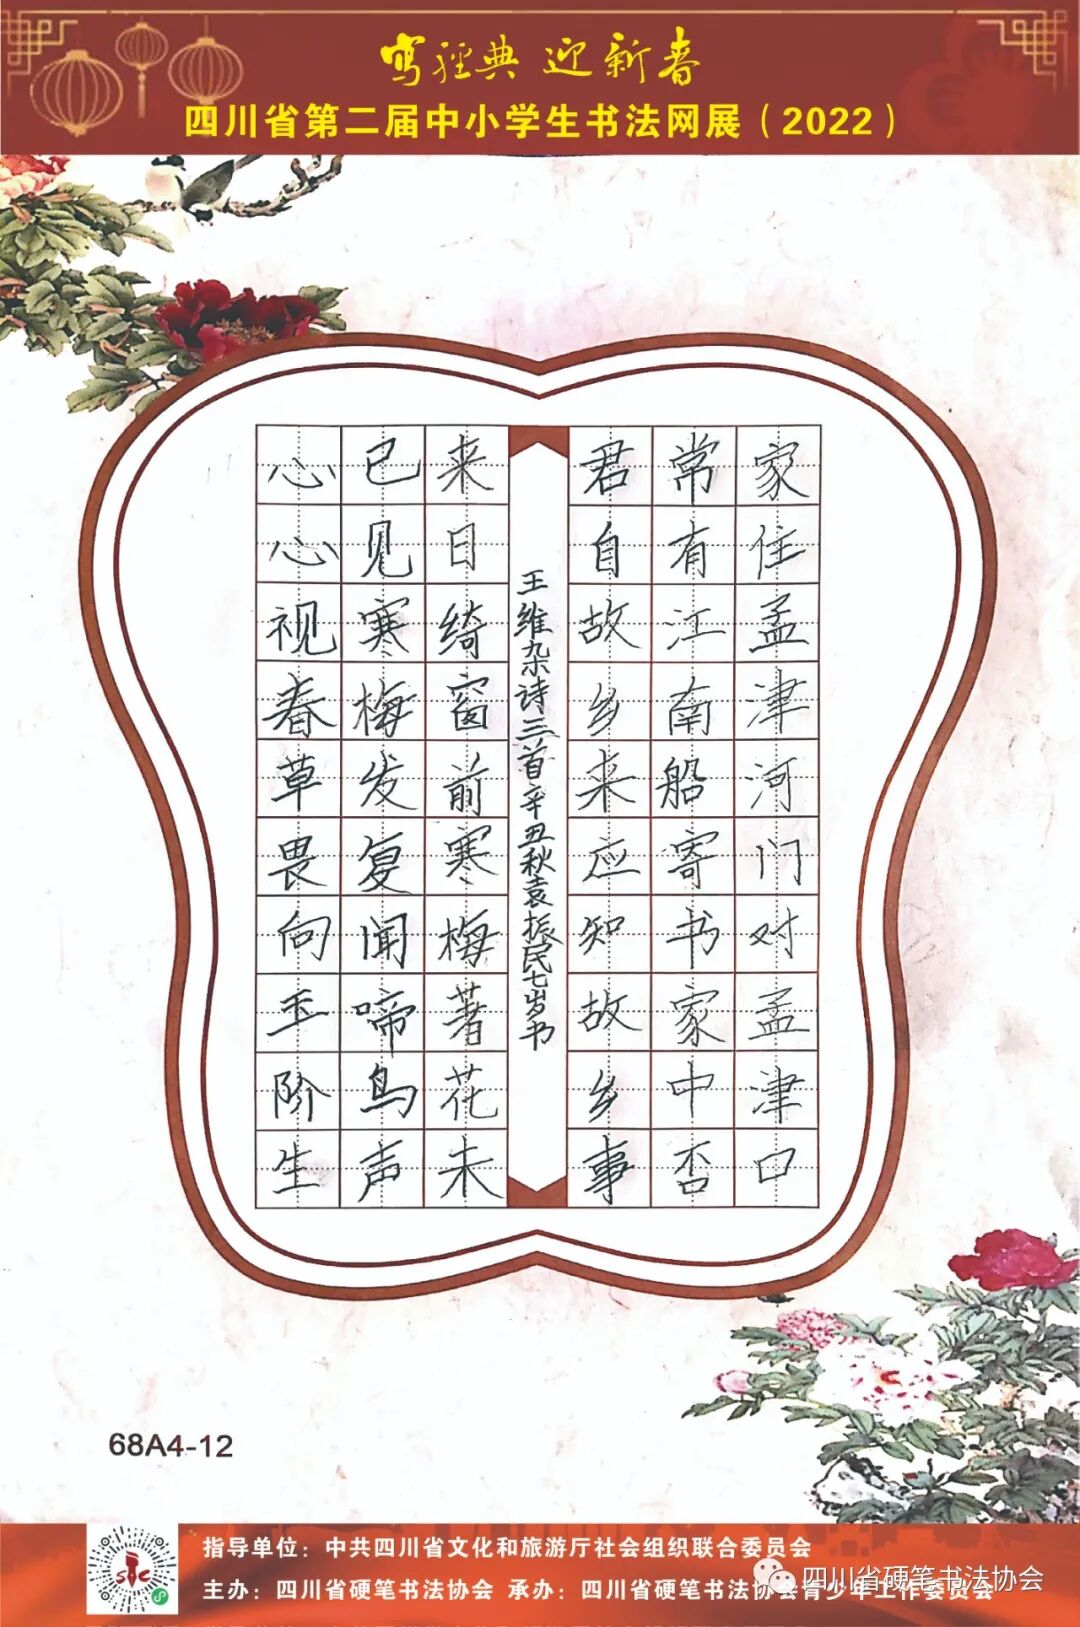 写经典 迎新春
四川省第二届中小学生书法网展（2022）
家住孟津河门对孟津口
常有江南船寄书家中否
君自故乡来应知故乡事
王维杂诗三首辛丑秋袁振民七岁书
来日绮窗前寒梅著花未
已见寒梅发复闻啼鸟声
心心视春草畏向玉阶生
68A4-12
指导单位：中共四川省文化和旅游厅社会组织联合委员会
主办：四川省硬笔书法协会 承办：四川省硬笔书法协会青少年工作委员会
四川省硬笔书法协会